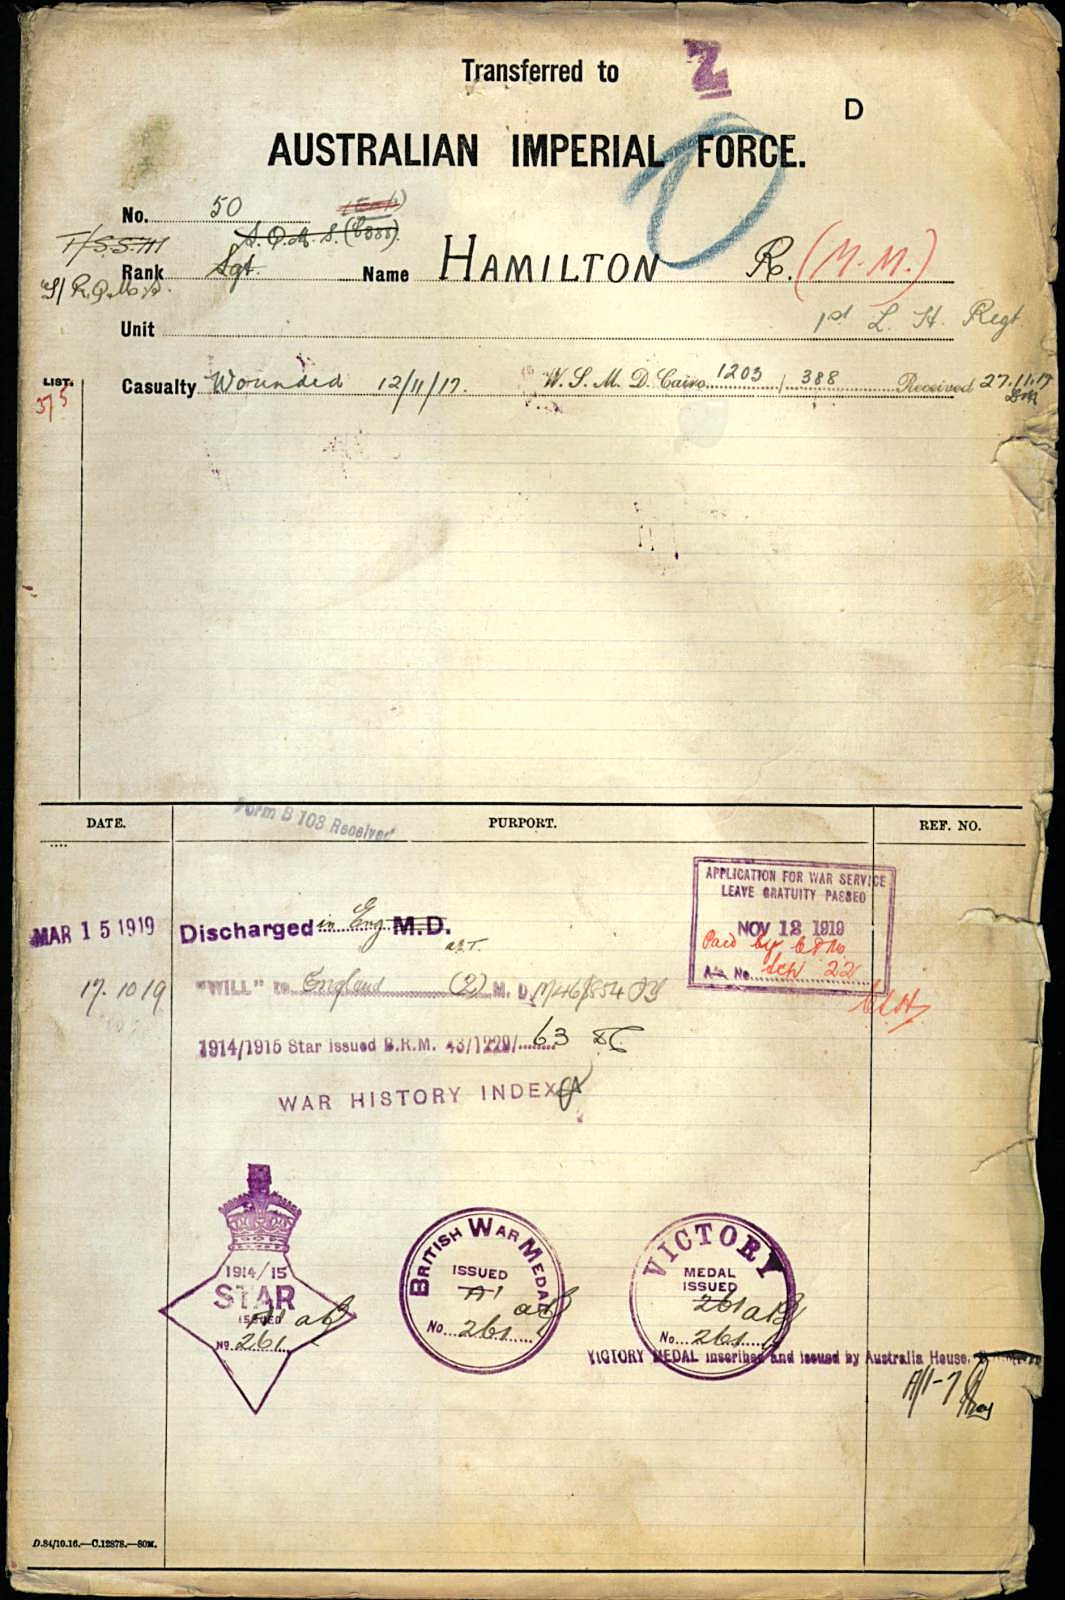 Transferred to Z
D
AUSTRALIAN IMPERIAL FORCE.
No. 50
T/S.S.M S.Q.M.S.
Rank Sgt. Name HAMILTON R. (M.M.)
Unit 1st L. H. Regt
LIST. Casualty Wounded 12/11/17. W. S. M. D. Cairo 1203 / 388 Received 27.11.17
375
DATE. PURPORT. REF. NO.
Form B 103 Received
APPLICATION FOR WAR SERVICE
LEAVE GRATUITY PASSED
MAR 15 1919 Discharged in Eng M.D.
NOV 12 1919
Paid by
No. 22
17.10.19 "WILL" to England (2) M. D.
1914/1915 Star issued B.R.M. 43/1229/ 63
WAR HISTORY INDEX
1914/15
STAR
ISSUED
No 261
BRITISH WAR MEDAL
ISSUED
No. 261
VICTORY
MEDAL
ISSUED
261
No. 261
VICTORY MEDAL inscribed and issued by Australia House.
A/1-7
D.84/10.16.—C.12878.—80M.